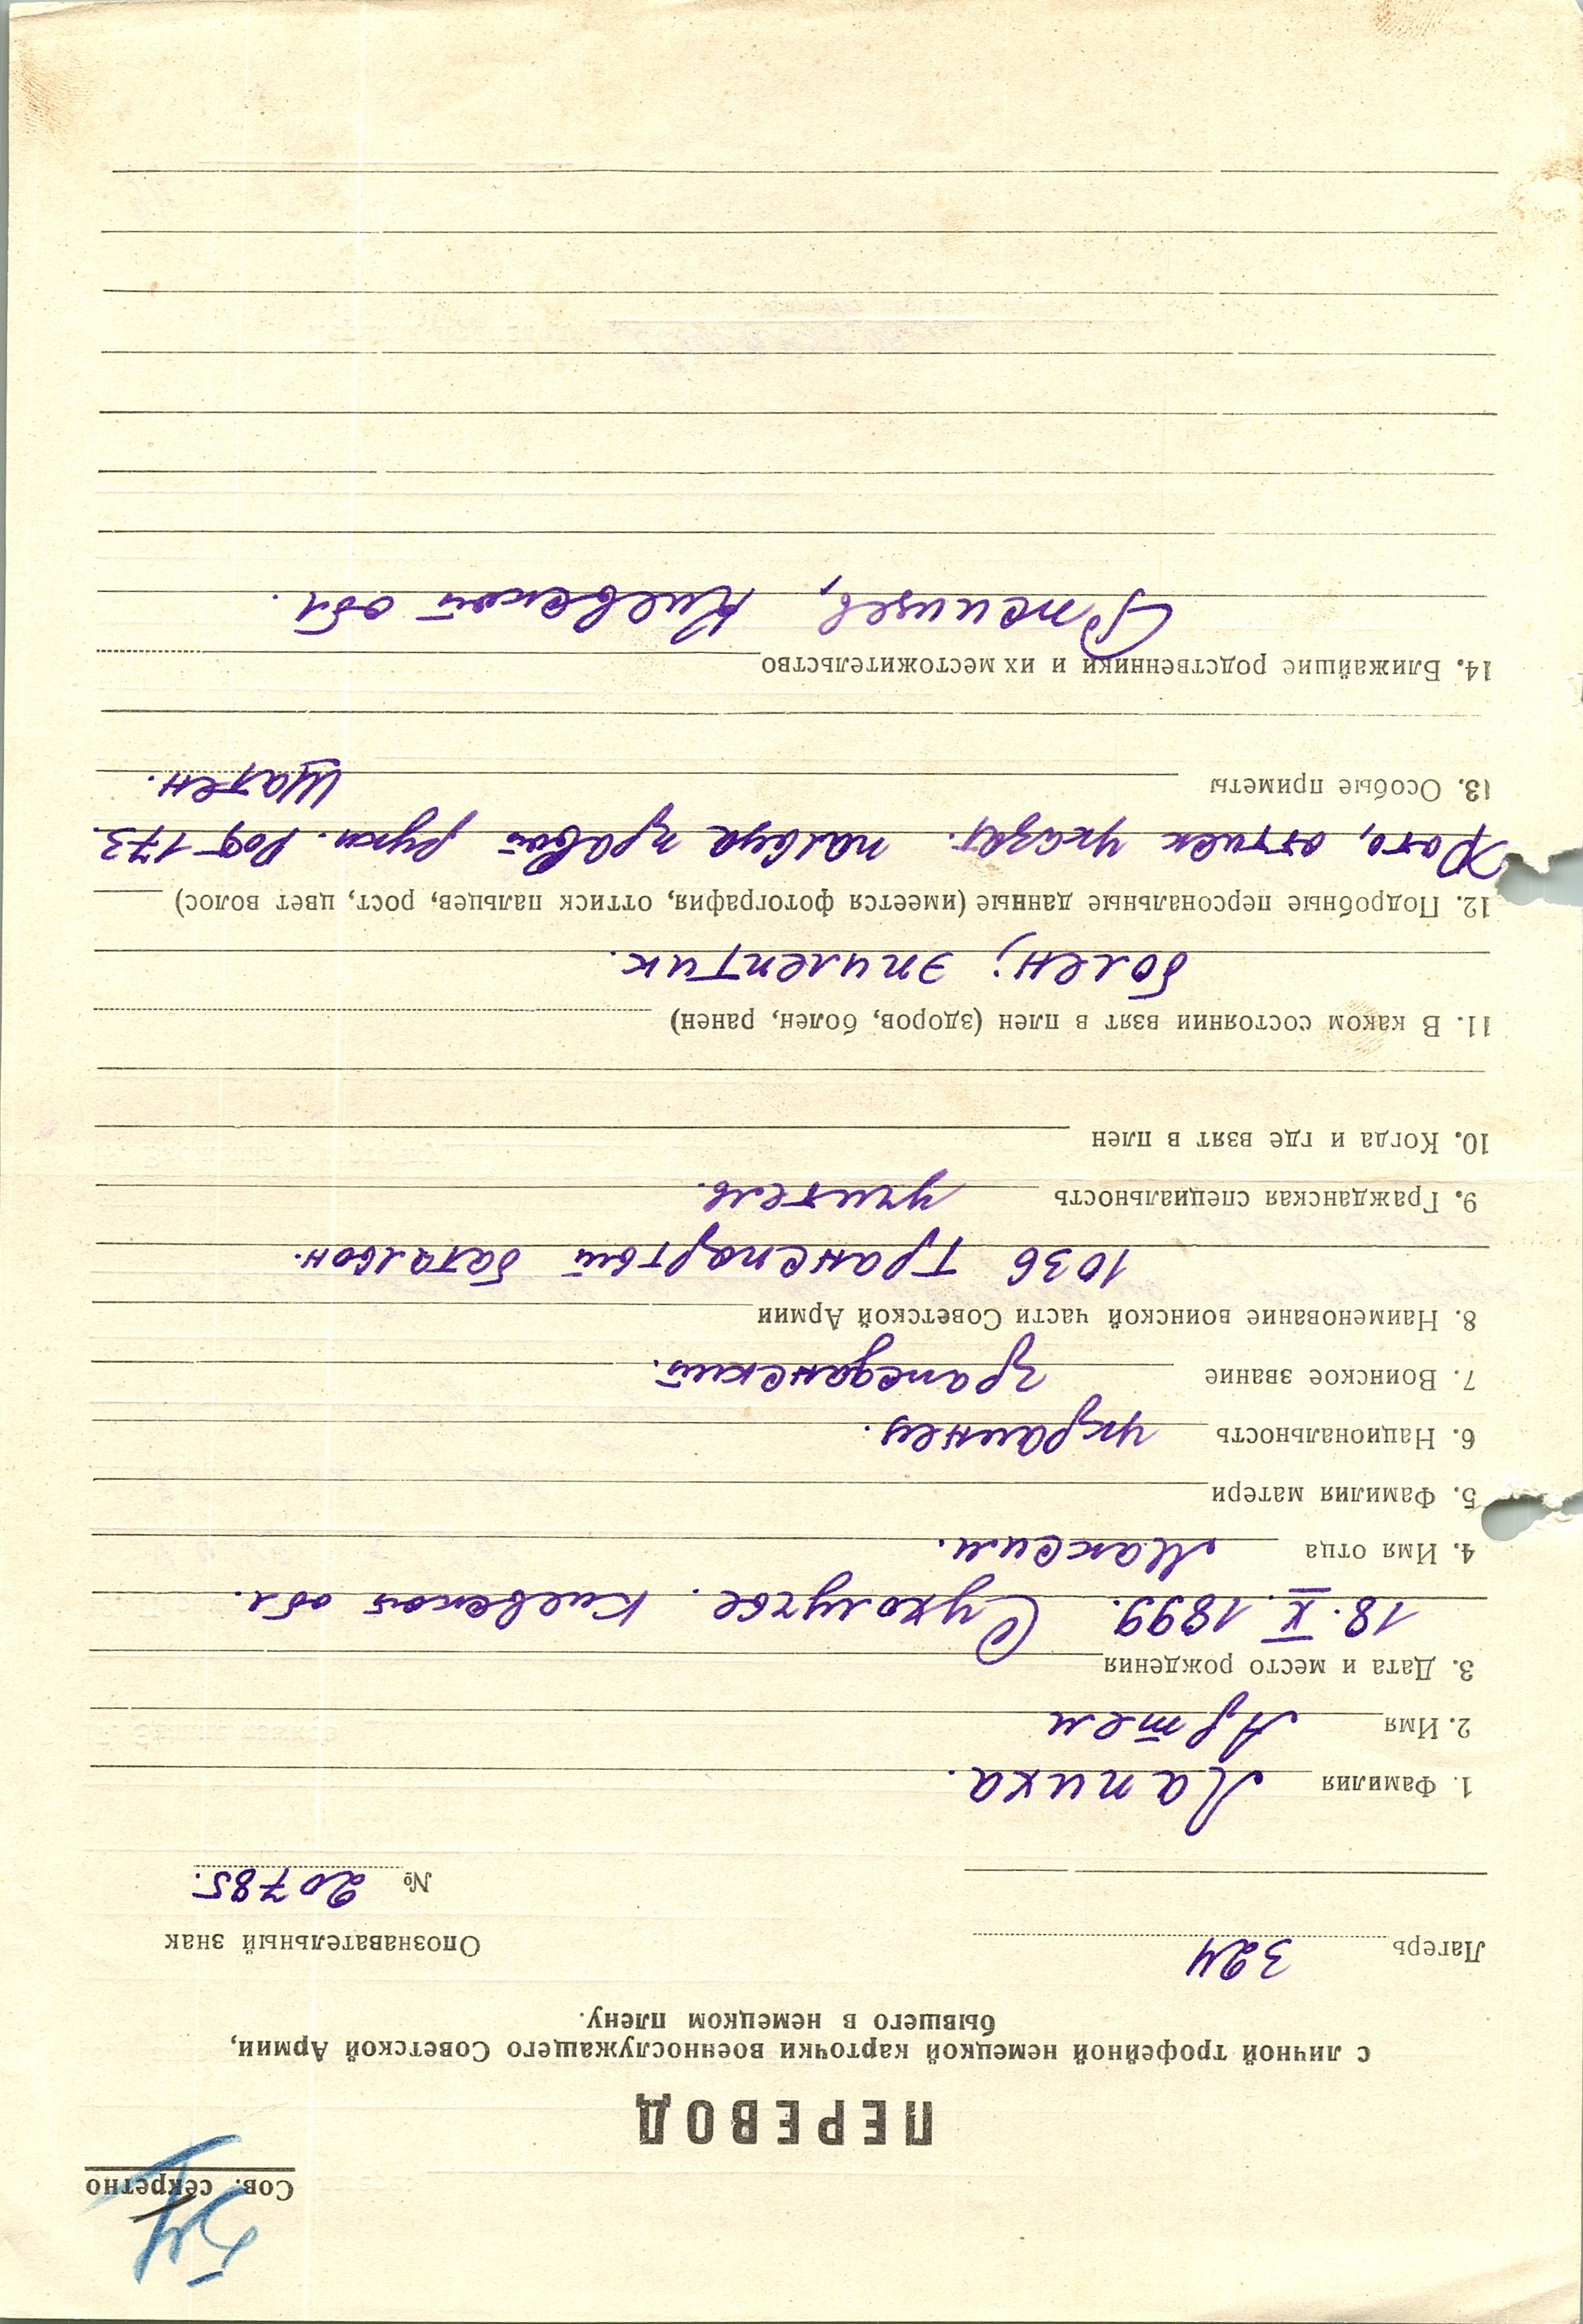 Сов. секретно
ПЕРЕВОД
с личной трофейной немецкой карточки военнослужащего Советской Армии,
бывшего в немецком плену.
Лагерь 324 Опознавательный знак
№ 20785.
1. Фамилия Лапиха.
2. Имя Артем
3. Дата и место рождения
18. X. 1899. Сухолучье. Киевской обл.
4. Имя отца Максим.
5. Фамилия матери
6. Национальность украинец.
7. Воинское звание гражданский.
8. Наименование воинской части Советской Армии
1036 транспортный батальон.
9. Гражданская специальность учитель.
10. Когда и где взят в плен
11. В каком состоянии взят в плен (здоров, болен, ранен)
болен; эпилептик.
12. Подробные персональные данные (имеется фотография, оттиск пальцев, рост, цвет волос)
Фото, оттиск указат. пальца правой руки. Рост 173.
13. Особые приметы шатен.
14. Ближайшие родственники и их местожительство
Ржищев, Киевской обл.